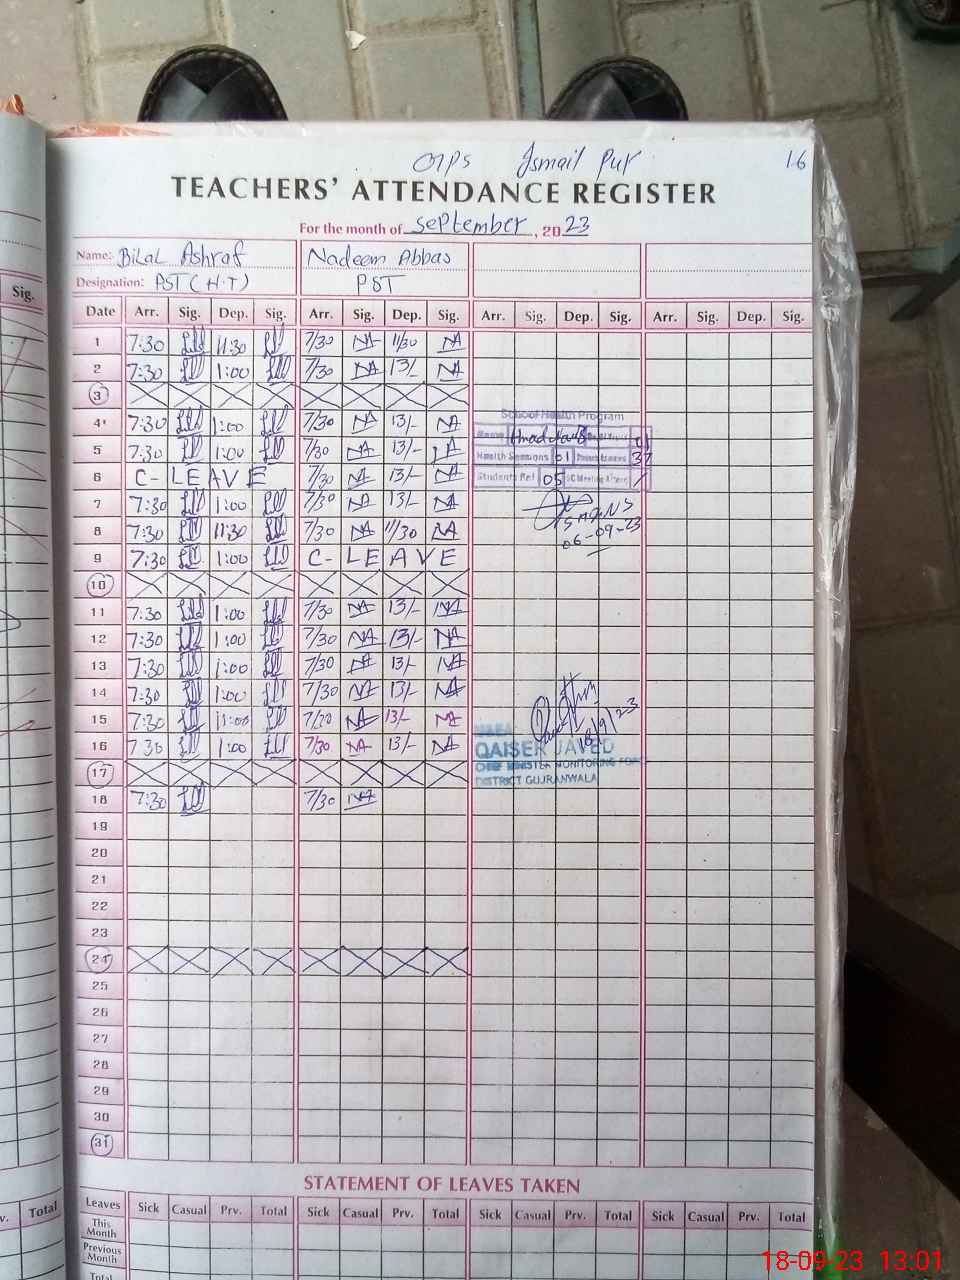 GMPS Ismail Pur 16
TEACHERS' ATTENDANCE REGISTER
For the month of September, 2023
Name: Bilal Ashraf Nadeem Abbas
Sig. Designation: PST (H.T) PST
Date Arr. Sig. Dep. Sig. Arr. Sig. Dep. Sig. Arr. Sig. Dep. Sig. Arr. Sig. Dep. Sig.
1 7:30 11:30 7/30 NA 11/30 NA
2 7:30 1:00 7/30 NA 13/- NA
3
4 7:30 1:00 7/30 NA 13/- NA
School Health Program
5 7:30 1:00 7/30 NA 13/- NA
Name 01
Health Sessions 01 37
6 C-LEAVE 7/30 NA 13/- NA
Students Ref 05
7 7:30 1:00 7/30 NA 13/- NA
8 7:30 11:30 7/30 NA 11/30 NA
06-09-23
9 7:30 1:00 C-LEAVE
10
11 7:30 1:00 7/30 NA 13/- NA
12 7:30 1:00 7/30 NA 13/- NA
13 7:30 1:00 7/30 NA 13/- NA
14 7:30 1:00 7/30 NA 13/- NA
15 7:30 1:00 7/30 NA 13/- NA
18/9/23
16 7:30 1:00 7/30 NA 13/- NA
QAISER JAVED
17
MINISTER MONITORING FORCE
DISTRICT GUJRANWALA
18 7:30 7/30 NA
19
20
21
22
23
24
25
26
27
28
29
30
31
STATEMENT OF LEAVES TAKEN
Total Leaves Sick Casual Prv. Total Sick Casual Prv. Total Sick Casual Prv. Total Sick Casual Prv. Total
This Month
Previous Month
Total
18-09-23 13:01